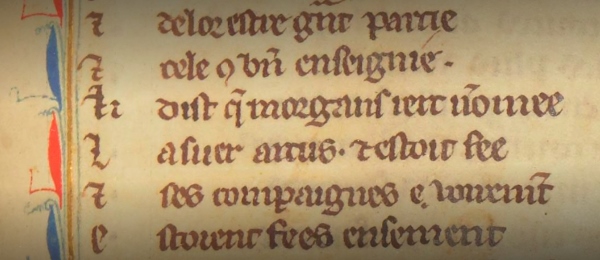 ⁊ delor estre gñt partie
⁊ cele ꝯ bñ enseignie.
ki dist q̃ morgans iert nõmee
L a suer artus. ⁊ estoit fee
⁊ ses compaignes
e stoient fees ensement